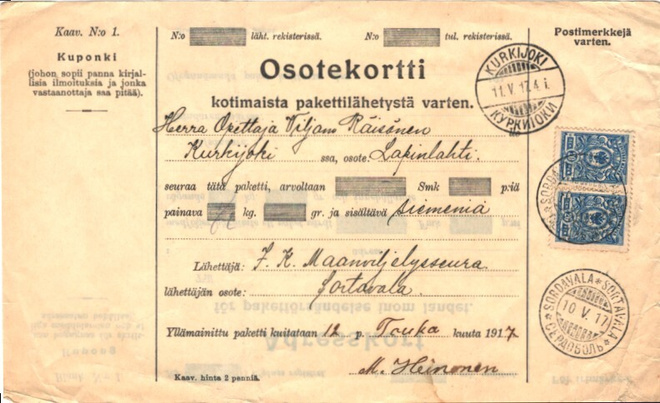 Kaav. N:o 1.
Kuponki
(johon sopii panna kirjal-
lisia ilmoituksia ja jonka
vastaanottaja saa pitää).
N:o läht. rekisterissä. N:o tul. rekisterissä.
Postimerkkejä
varten.
Osotekortti
kotimaista pakettilähetystä varten.
KURKIJOKI
11.V.17.4 i.
КУРКИЙОКИ
Herra Opettaja Viljam Räisönen
Kurkijoki ssa, osote: Lapinlahti.
seuraa tätä paketti, arvoltaan Smk p:iä
painava kg. gr. ja sisältävä siemeniä
Lähettäjä: F. K. Maanviljelysseura
lähettäjän osote: Sortavala
SORDAVALA * SORTAVALA
10.V.17
* СЕРДОБОЛЬ *
Yllämainittu paketti kuitataan 12 p. Touko kuuta 1917
M. Heinonen
Kaav. hinta 2 penniä.